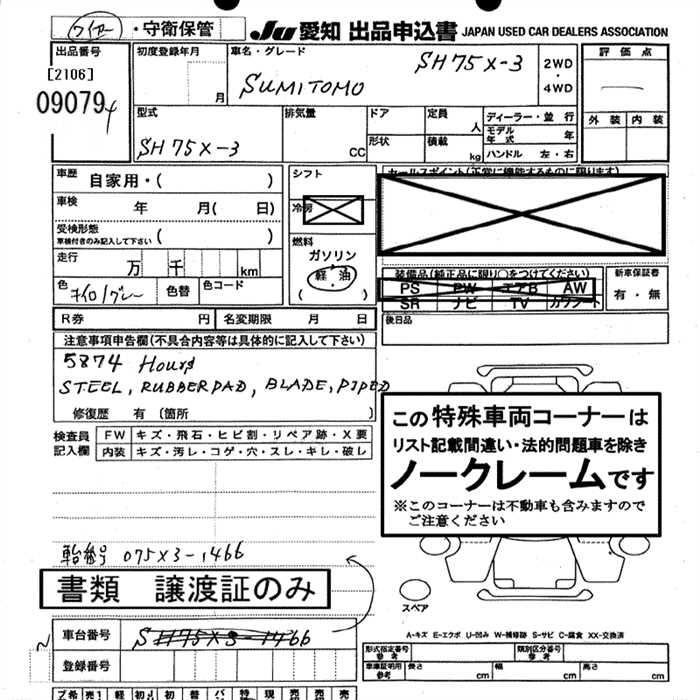 ワイヤー ・守衛保管 JU 愛知 出品申込書 JAPAN USED CAR DEALERS ASSOCIATION
出品番号 初度登録年月 車名・グレード SH75X-3 2WD ・ 4WD 評価点
[2106] 月 SUMITOMO
09079 4
型式 排気量 ドア 定員 人 ディーラー・並行 外装 内装
SH75X-3 CC 形状 積載 kg モデル年式 年
ハンドル 左・右
車歴 自家用・( ) シフト セールスポイント(正常に機能するものに限ります)
車検 年 月( 日) 冷房
受検形態 車検付きのみ記入して下さい ( ) 燃料
走行 万 千 km ガソリン
軽・油
( )
色 キイロ/グレー 色替 色コード 装備品(純正品に限り○をつけてください) 新車保証書
PS PW エアB AW 有・無
SR ナビ TV カワシート
R券 円 名変期限 月 日 後日品
注意事項申告欄(不具合内容等は具体的に記入して下さい)
5874 Hours
STEEL, RUBBERPAD, BLADE, PIPED
修復歴 有 〔箇所 〕
検査員記入欄 FW キズ・飛石・ヒビ割・リペア跡・X要
内装 キズ・汚レ・コゲ・穴・スレ・キレ・破レ
この特殊車両コーナーは
リスト記載間違い・法的問題車を除き
ノークレームです
※このコーナーは不動車も含みますので
ご注意ください
車台番号 075X3-1466
書類 譲渡証のみ
スペア
車台番号 SH75X3-1466
登録番号
A-キズ E-エクボ U-凹み W-補修跡 S-サビ C-腐食 XX-交換済
形式指定番号 参考 類別区分番号 参考
車庫証明用 参考 長さ cm 幅 cm 高さ cm